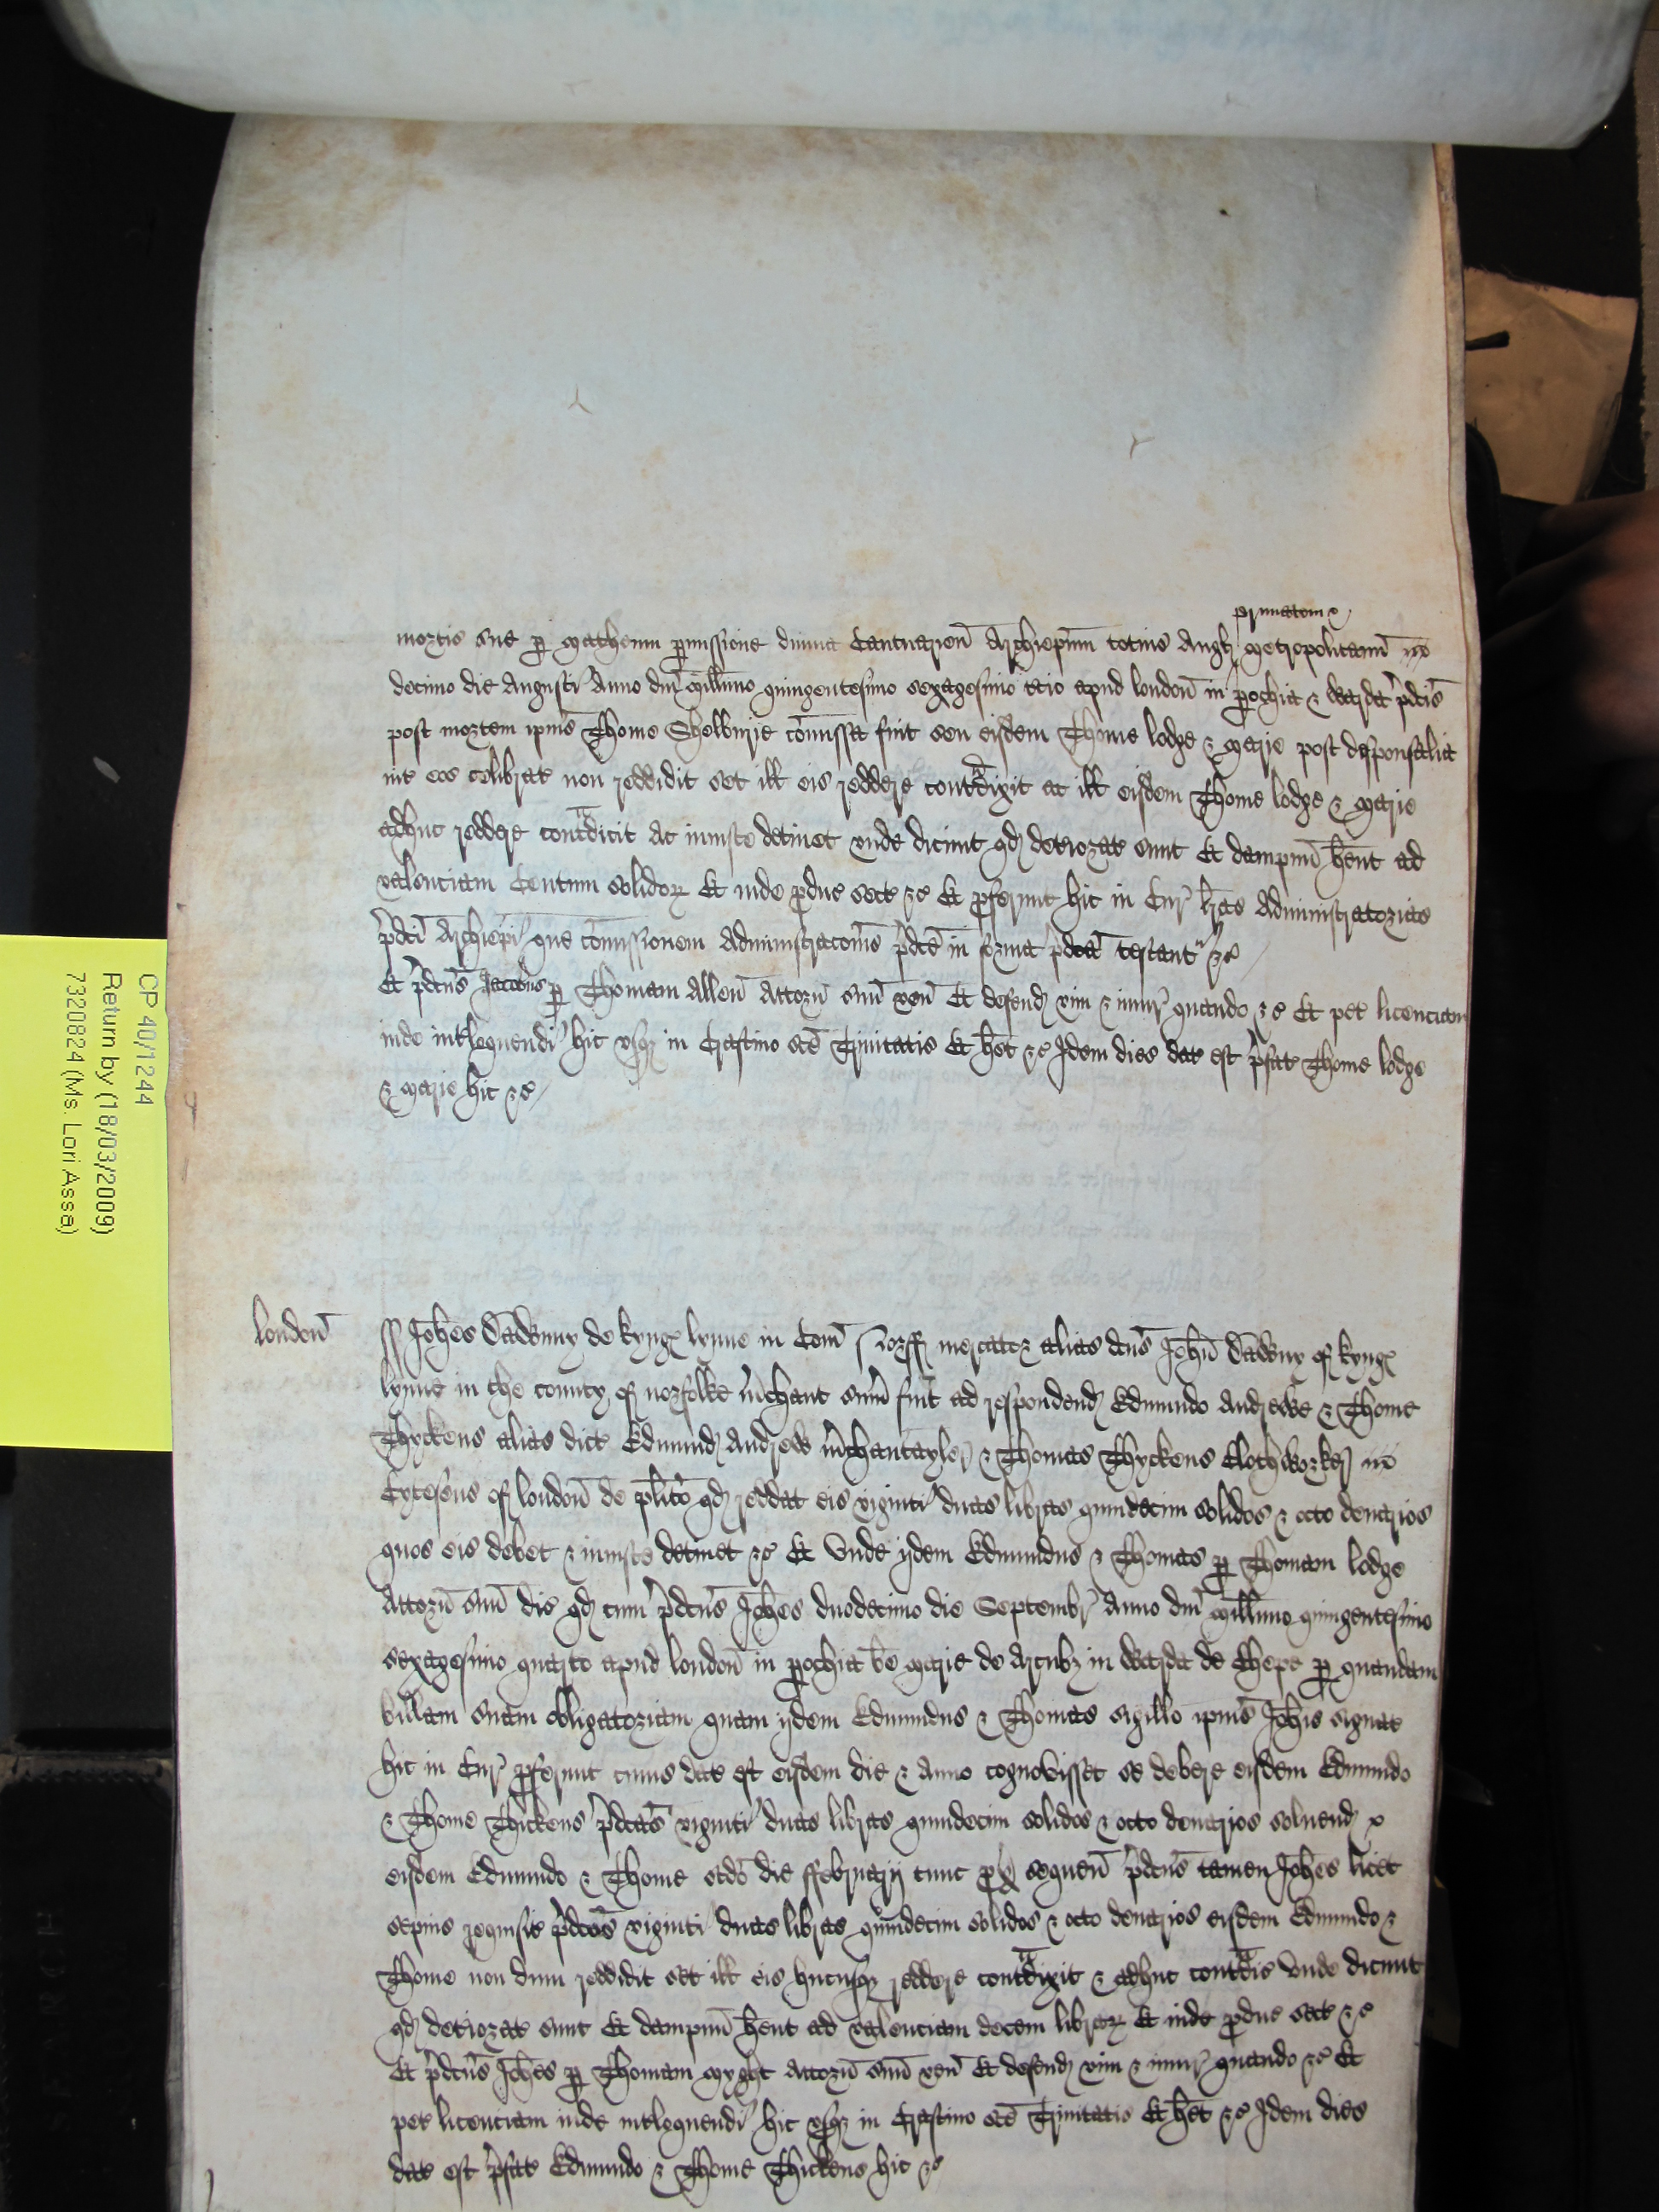 primatem &
mortis sue p Matheum pmissione divina Cantuarien Archiepm totius Angl Metropolitanu
decimo die Augusti Anno dni Millimo quingentesimo sexagesimo tcio apud london in pochia & Warda pdcis
post mortem ipius Thome Shelburie comissa fuit seu eisdem Thome lodge & Marie post desponsalia
int eos celibrat non reddidit set ill eis reddere contradixit ac ill eisdem Thome lodge & Marie
adhuc reddere contradicit Ac iniuste detinet unde dicunt qd deteriorat sunt Et dampnu hent ad
valenciam Centum solidor Et inde pduc sect &c Et pferunt hic in Cur lras Administratorias
pdci Archiepi que comissionem Administracois pdce in forma pdca testant &c
Et pdcus Jacobus p Thomam Allen Attorn suu ven Et defend vim & iniur quando &c Et pet licenciam
inde intloquendi hic usq in Crastino sce Trinitatis Et het &c Idem dies dat est pfat Thome lodge
& Marie hic &c
london
ss Johes Dawbny de kyng lynne in Com Norff mercator alias dcus Johu Dawbny of kyng
lynne in the county of norfolke mchant sum fuit ad respondend Edmundo Andrewe & Thome
Thyckens alias dict Edmund Andrew mchantayler & Thomas Thyckens Clothworker
Cytesens of london de plito qd reddat eis viginti duas libras quindecim solidos & octo denarios
quos eis debet & iniuste detinet &c Et Unde ijdem Edmundus & Thomas p Thomam lodge
Attorn suu dic qd cum pdcus Johes duodecimo die Septembr Anno dni Millimo quingentesimo
sexagesimo quarto apud london in pochia be Marie de Arcubz in Warda de Chepe p quandam
billam suam obligatoriam quam ijdem Edmundus & Thomas sigillo ipius Johis signat
hic in Cur pferunt cuius dat est eisdem die & Anno cognovisset se debere eisdem Edmundo
& Thome Thickens pdcas viginti duas libras quindecim solidos & octo denarios solvend
eisdem Edmundo & Thome scdo die ffebruarij tunc px sequen pdcus tamen Johes licet
sepius requisit pdcas viginti duas libras quindecim solidos & octo denarios eisdem Edmundo &
Thome non dum reddidit set ill eis hucusq reddere contradixit & adhuc contradic Unde dicunt
qd deteriorat sunt Et dampnu hent ad valenciam decem librar Et inde pduc sect &c
Et pdcus Johes p Thomam Myght Attorn suu ven Et defend vim & iniur quando &c Et
pet licenciam inde intloquendi hic usq in Crastino sce Trinitatis Et het &c Idem dies
dat est pfat Edmundo & Thome Thickens hic &c
CP 40/1244
Return by (18/03/2009)
7320824 (Ms. Lori Assa)